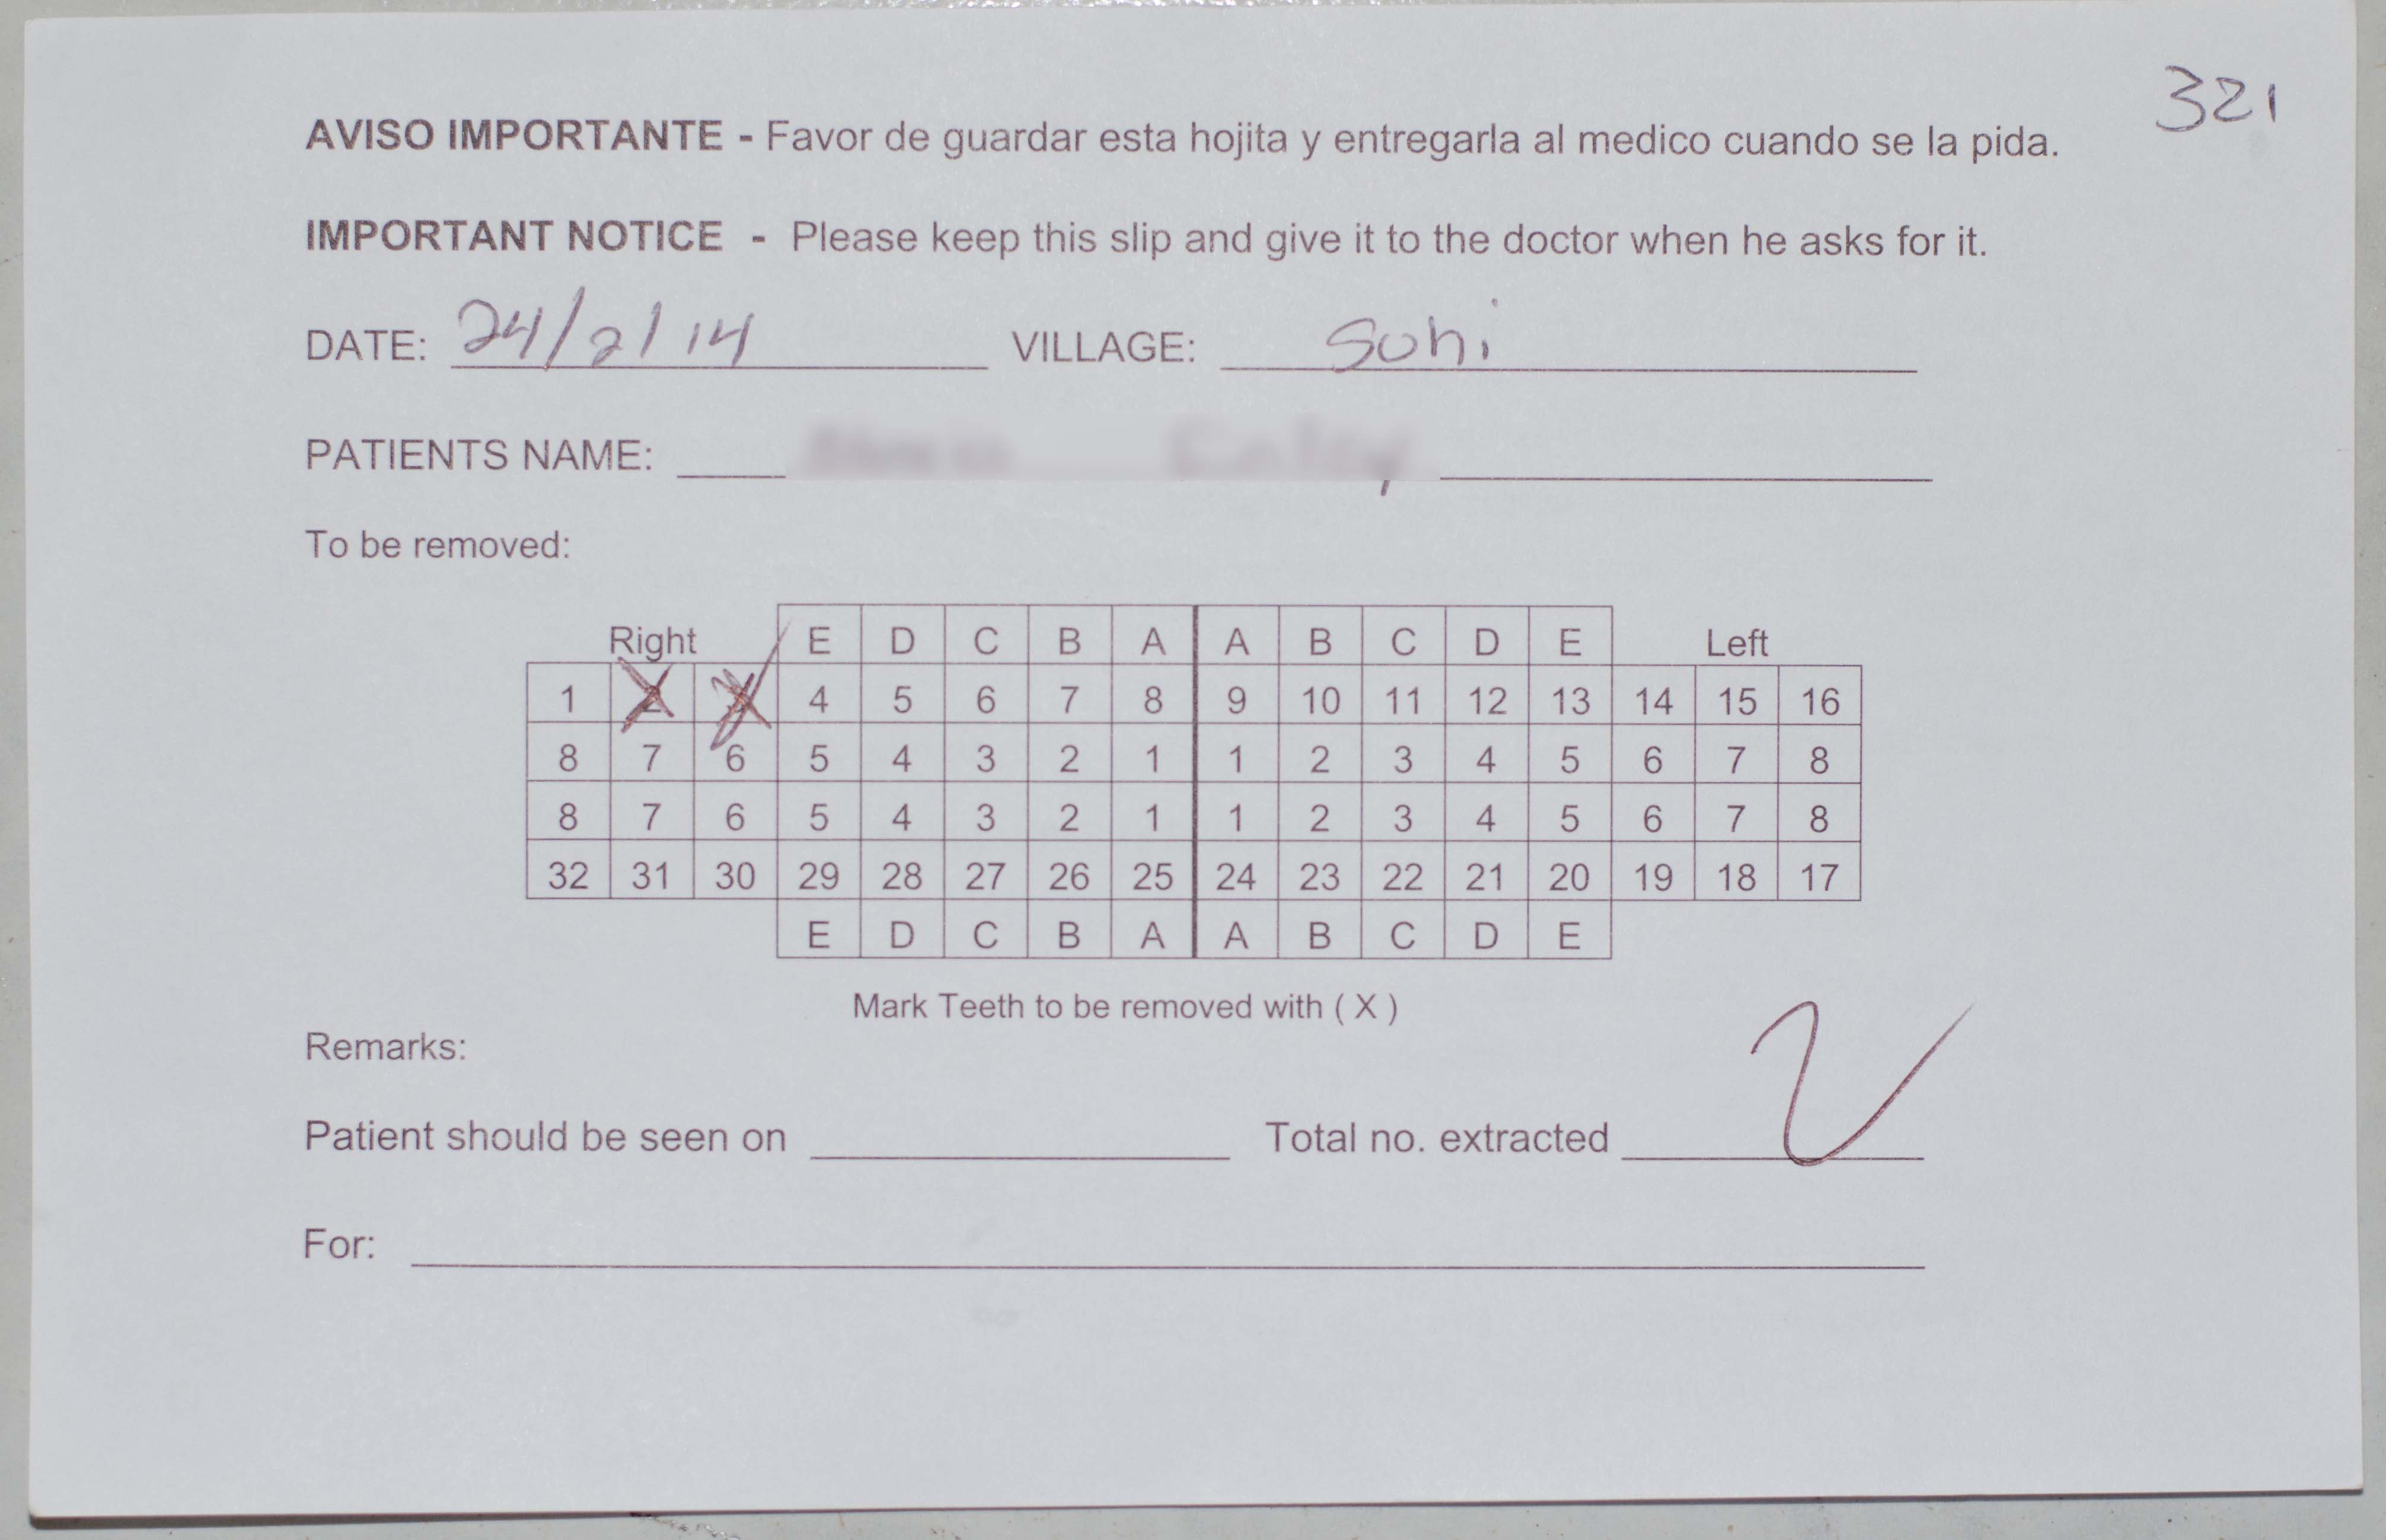 321
AVISO IMPORTANTE - Favor de guardar esta hojita y entregarla al medico cuando se la pida.
IMPORTANT NOTICE - Please keep this slip and give it to the doctor when he asks for it.
DATE: 24/2/14 VILLAGE: Suhi
PATIENTS NAME:
To be removed:
E D C B A A B C D E
Right Left
1 2 3 4 5 6 7 8 9 10 11 12 13 14 15 16
8 7 6 5 4 3 2 1 1 2 3 4 5 6 7 8
8 7 6 5 4 3 2 1 1 2 3 4 5 6 7 8
32 31 30 29 28 27 26 25 24 23 22 21 20 19 18 17
E D C B A A B C D E
Mark Teeth to be removed with ( X )
Remarks:
Patient should be seen on Total no. extracted 2
For: